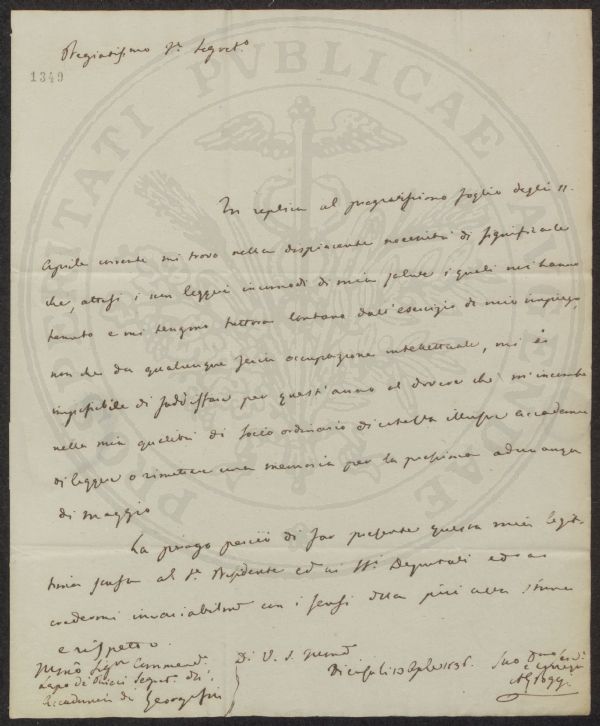 Pregiatissimo Sr. Segreto.
1349
PROSPERITATI PUBLICAE AUGENDAE
In replica al pregiatissimo foglio degli 11.
Aprile corrente mi trovo nella dispiacente necessità di significarle
che, attesi i non leggeri incomodi di mia salute i quali mi hanno
tenuto e mi tengono tuttora lontano dall'esercizio di mio impiego,
non che da qualunque seria occupazione intellettuale, mi è
impossibile di soddisfare per quest'anno al dovere che m'incombe
nella mia qualità di socio ordinario di cotesta illustre Accademia
di leggere o rimettere una memoria per la prossima adunanza
di Maggio
La prego perciò di far presente questa mia legit-
tima scusa al Sr. Presidente ed ai SSri. Deputati ed a
credermi invariabilmte con i sensi della più alta stima
e rispetto.
Di V. S. Illma
Sigr Commend.
Lapo de' Ricci Segreto. dei
Accademia di Georgofili